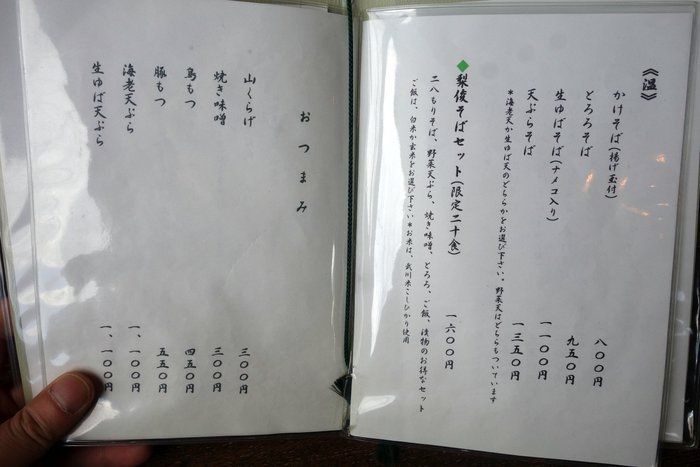 《温》
かけそば(揚げ玉付) 八〇〇円
とろろそば 九五〇円
生ゆばそば(ナメコ入り) 一一〇〇円
天ぷらそば 一三五〇円
*海老天か生ゆば天のどちらかをお選び下さい。野菜天はどちらもついています
◆梨俊そばセット(限定二十食) 一六〇〇円
二八もりそば、野菜天ぷら、焼き味噌、とろろ、ご飯、漬物のお得なセット
ご飯は、白米か玄米をお選び下さい*お米は、武川米こしひかり使用
おつまみ
山くらげ 三〇〇円
焼き味噌 三〇〇円
鳥もつ 四五〇円
豚もつ 五五〇円
海老天ぷら 一、一〇〇円
生ゆば天ぷら 一、一〇〇円